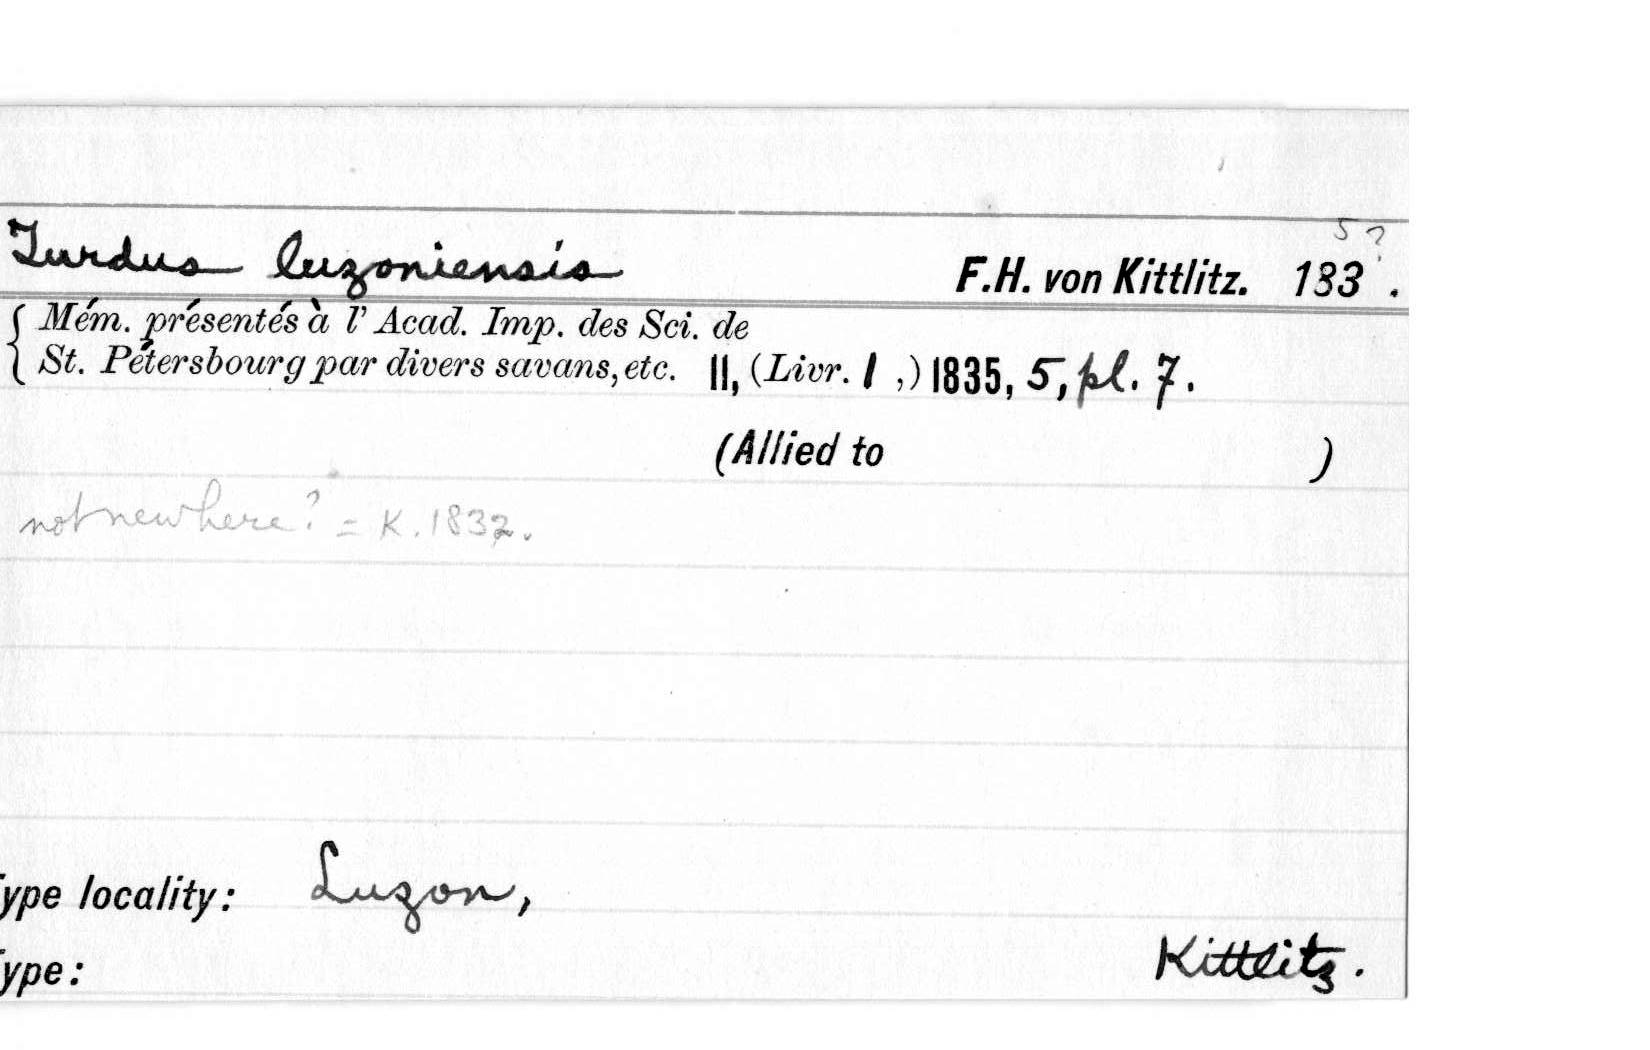 5?
Turdus luzoniensis F.H. von Kittlitz. 183 .
Mém. présentés à l' Acad. Imp. des Sci. de
St. Pétersbourg par divers savans, etc. II, (Livr. 1 ,) 1835, 5, pl. 7.
(Allied to )
not new here? = K. 1832.
Type locality: Luzon,
Type: Kittlitz.